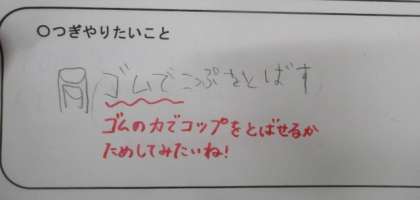 〇つぎやりたいこと
ゴムでこっぷをとばす
ゴムの力でコップをとばせるか
ためしてみたいね!